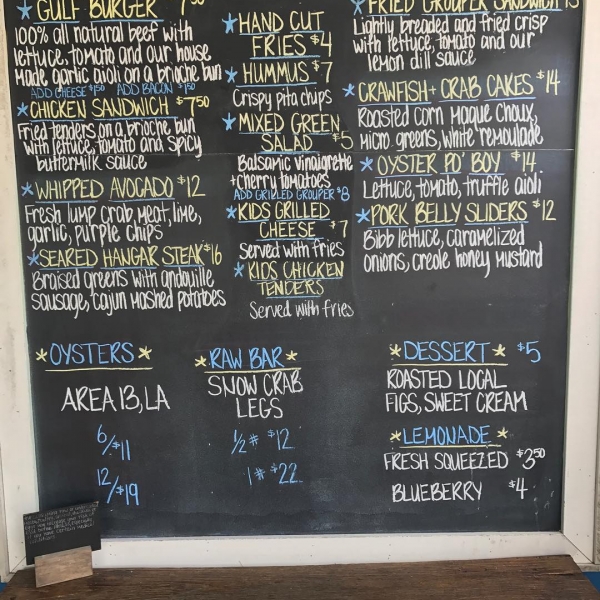 *GULF BURGER 7⁵⁰
100% all natural beef with
lettuce, tomato and our house
made garlic aioli on a brioche bun
ADD CHEESE $1⁵⁰ ADD BACON $1⁵⁰
*CHICKEN SANDWICH $7⁵⁰
Fried tenders on a brioche bun
with lettuce, tomato and spicy
buttermilk sauce
*WHIPPED AVOCADO $12
Fresh lump crab meat, lime,
garlic, purple chips
*SEARED HANGAR STEAK $16
Braised greens with andouille
sausage, cajun mashed potatoes
*HAND CUT
FRIES $4
*HUMMUS $7
Crispy pita chips
*MIXED GREEN
SALAD $5
Balsamic vinaigrette
+cherry tomatoes
ADD GRILLED GROUPER $8
*KIDS GRILLED
CHEESE $7
Served with fries
*KIDS CHICKEN
TENDERS
Served with fries
*FRIED GROUPER SANDWICH 13
Lightly breaded and fried crisp
with lettuce, tomato and our
lemon dill sauce
*CRAWFISH+CRAB CAKES $14
Roasted corn maque choux,
micro greens, white remoulade
*OYSTER PO' BOY $14
Lettuce, tomato, truffle aioli
*PORK BELLY SLIDERS $12
Bibb lettuce, caramelized
onions, creole honey mustard
*OYSTERS*
AREA 13, LA
6/$11
12/$19
*RAW BAR*
SNOW CRAB
LEGS
½# $12
1# $22
*DESSERT* $5
ROASTED LOCAL
FIGS, SWEET CREAM
*LEMONADE*
FRESH SQUEEZED $3⁵⁰
BLUEBERRY $4